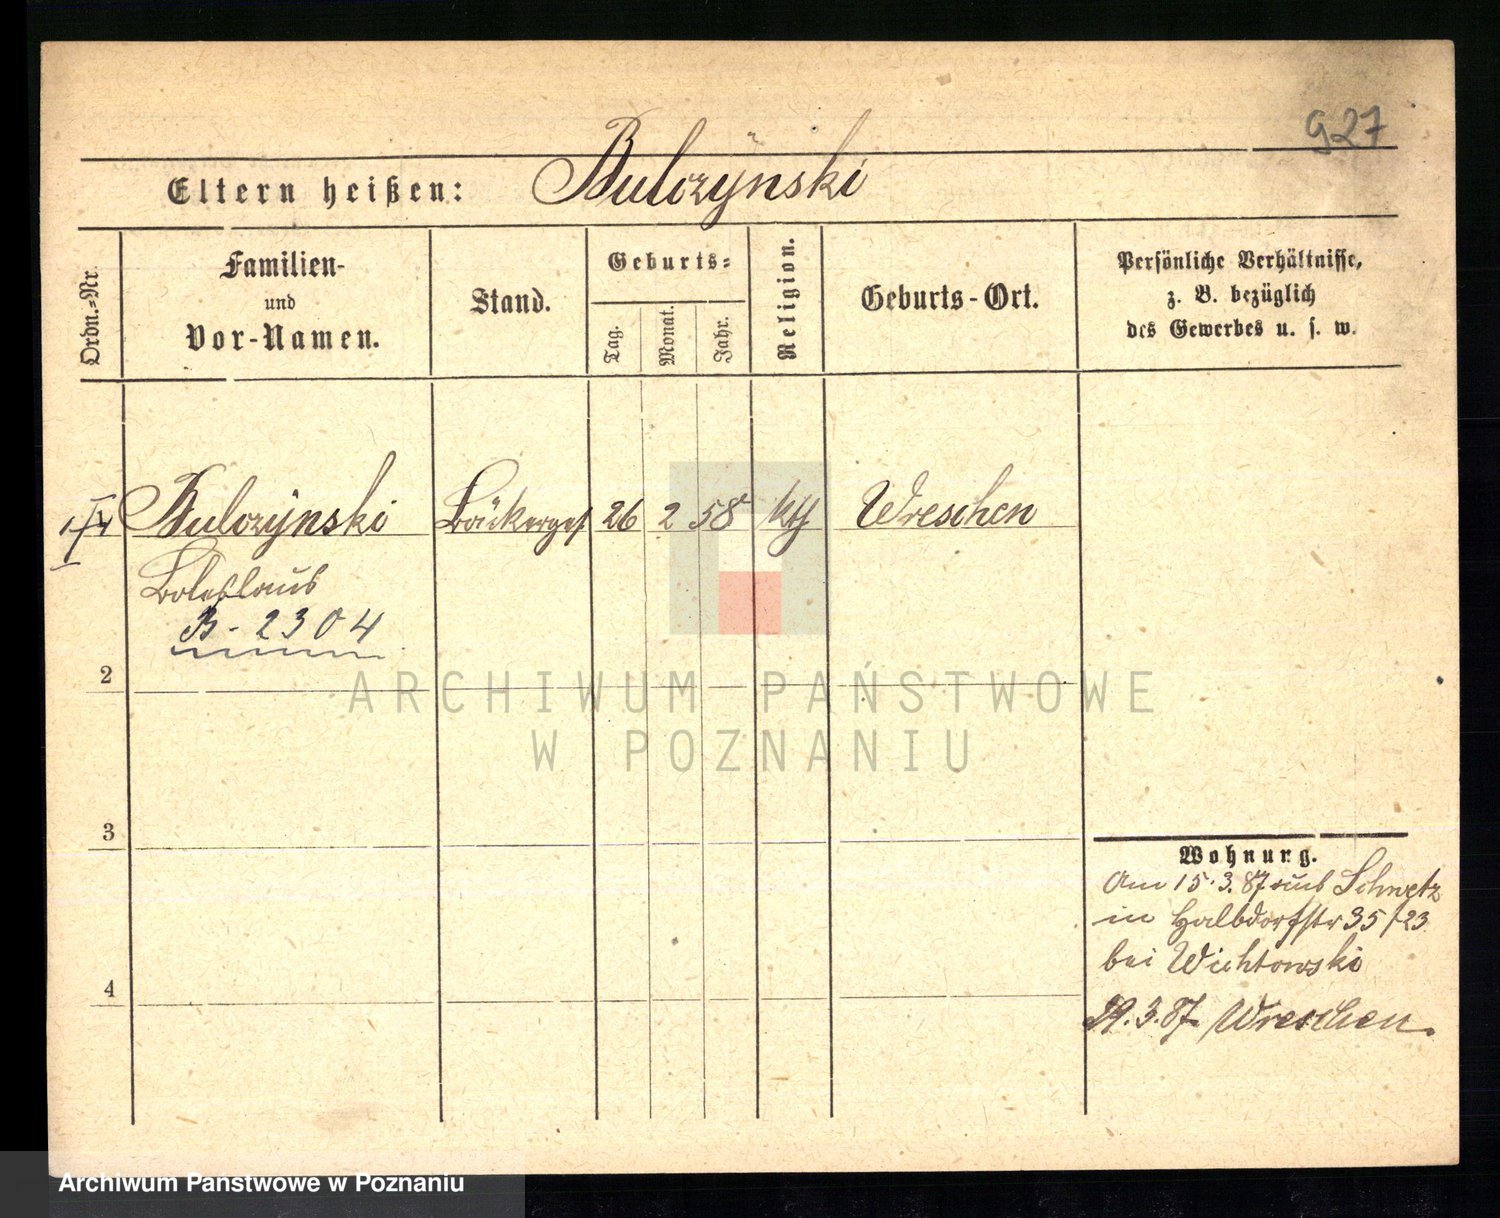 927
Eltern heißen: Bulczÿnski
Ordn.-Nr.
Familien-
und
Vor-Namen.
Stand.
Geburts-
Tag.
Monat.
Jahr.
Religion.
Geburts-Ort.
Persönliche Verhältnisse,
z. B. bezüglich
des Gewerbes u. s. w.
Bulczÿnski Bäckerges 26 2 58 kth Wreschen
Boleslaus
B-2304
2
ARCHIWUM PAŃSTWOWE
W POZNANIU
3
Wohnung.
Am 15.3.87 aus Schwetz
in Halbdorfstr 35/23
bei Wichtowski
4
29.3.87 Wreschen.
Archiwum Państwowe w Poznaniu